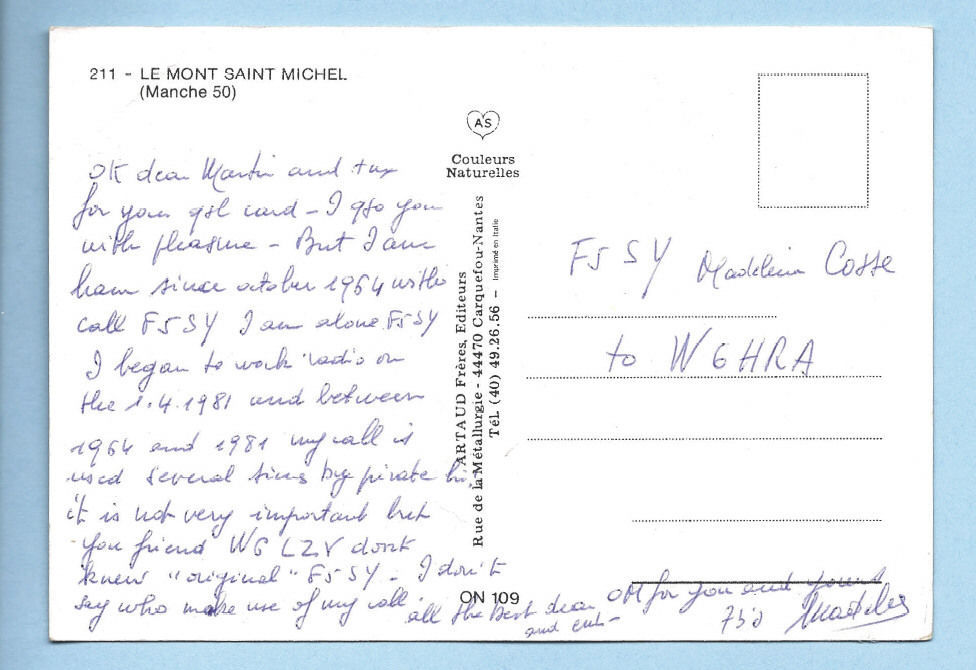 211 - LE MONT SAINT MICHEL
(Manche 50)
AS
Couleurs
Naturelles
OK dear Martin and tnx
for your qsl card - I qso you
with pleasure - But I am
ham since october 1964 with
call F5SY I am alone F5SY
I began to work radio on
the 1.4.1981 and between
1964 and 1981 my call is
used several times by private
it is not very important but
you friend W6 LZV dont
knew "original" F5SY - I don't
say who make use of my call
all the Best dear OM for you and yours
and
73's Madeleine
ARTAUD Frères, Editeurs
Rue de la Métallurgie - 44470 Carquefou-Nantes
Tél. (40) 49.26.56 - Imprimé en Italie
ON 109
F5SY Madeleine Cosse
to W6HRA